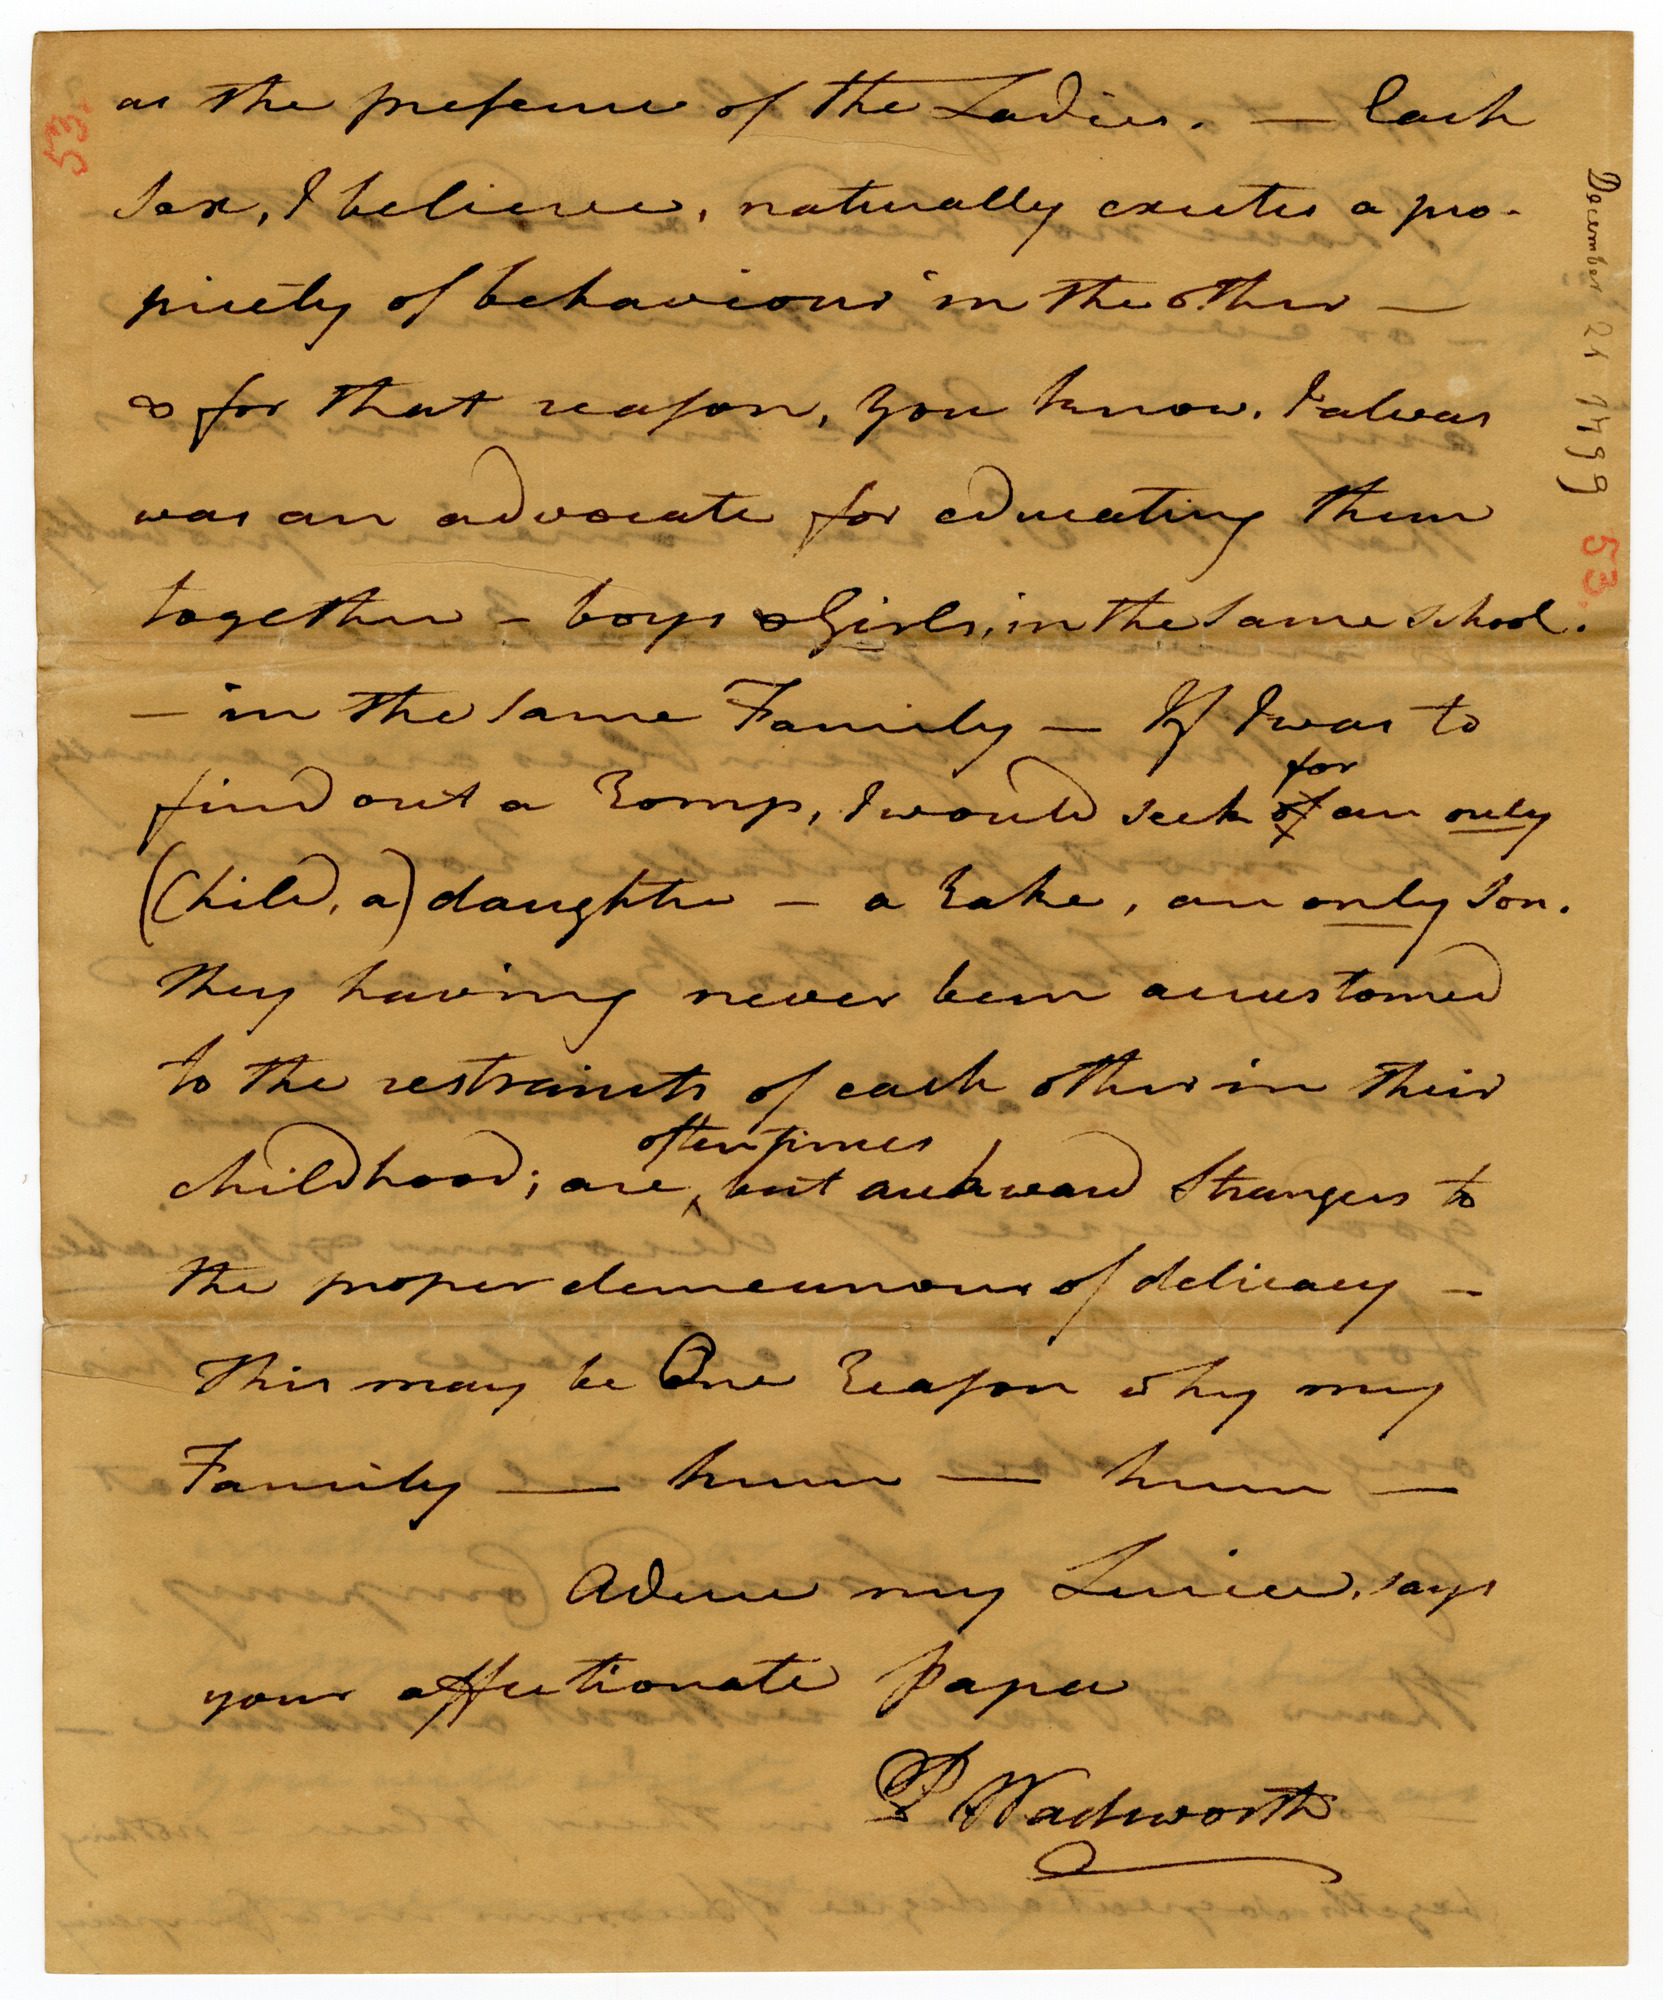 53.
December 21 1799
53.
as the presence of the Ladies. — Each
Sex, I believe, naturally excites a pro-
priety of behaviour in the other —
& for that reason, you know, I alwas
was an advocate for educating them
together – boys & Girls, in the same school.
— in the same Family — If I was to
find out a Romp, I would seek of for an only
(Child, a) daughter – a Rake, an only Son.
they having never been accustomed
to the restraints of each other in their
childhood; are oftentimes but awkward Strangers to
the proper demeanour of delicacy –
This may be One Reason why my
Family — hum — hum —
Adieu my Luciee, says
your affectionate Papa
P Wadsworth